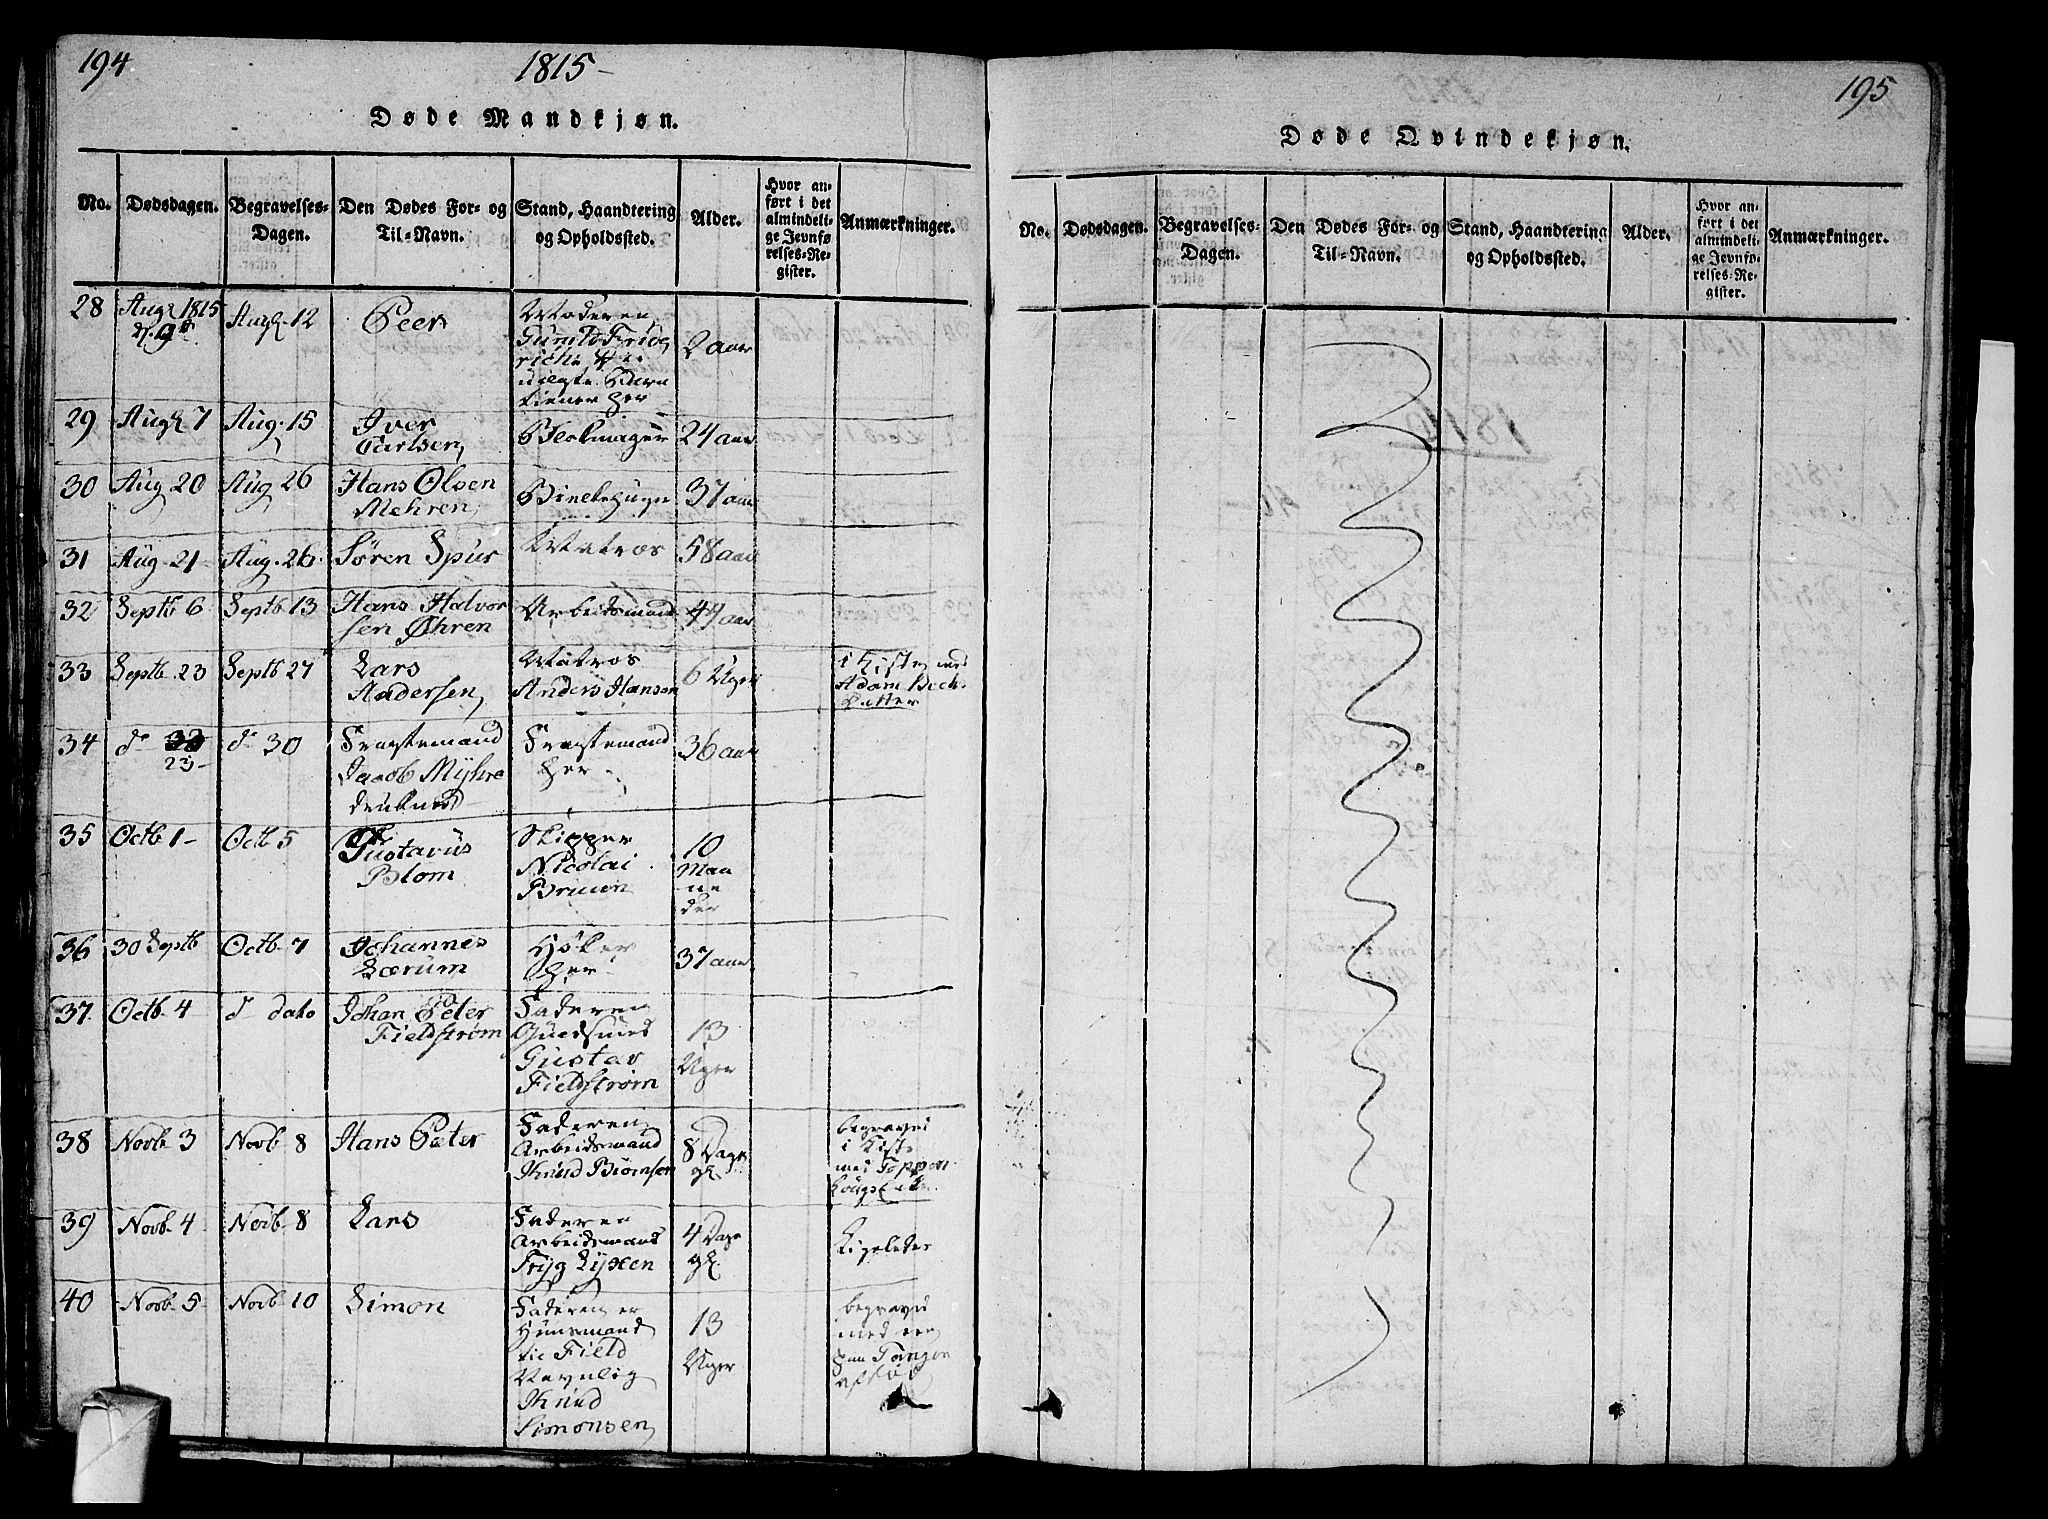 194
1815
Døde Mandkjøn.
No. Dødsdagen. Begravelses-Dagen. Den Dødes For- og Til-Navn. Stand, Haandtering og Opholdssted. Alder. Hvor anført i det almindelige Jevnførelses-Register. Anmærkninger.
28 Aug 1815 Aug 12 Peer Moderen 2 aar
her
29 Aug 7 Aug. 15 Iver Carlsen Blokmager 24 aar
30 Aug 20 Aug 26 Hans Olsen Mehren 37 aar
31 Aug 21 Aug. 26 Søren Spur Matros 58 aar
32 Septb 6 Septb 13 Hans Halvorsen Øhren Arbeidsmand 44 aar
33 Septb. 23 Septb 27 Lars Andersen Matros Anders Hansen 6 Uger i Kiste med Adam Bech
34 d° 23 d° 30 Fragtemand Jacob Myhre Fragtemand her 36 aar
35 Octb 1 Octb 5 Gustavus Blom Skipper Nicolai Bruun 10 Maaneder
36 30 Septb Octb 7 Johannes Lærum Høker her 37 aar
37 Octb. 4 d° dato Johan Peter Fieldstrøm Faderen Guldsmed Gustav Fieldstrøm 13 Uger
38 Novb 3 Novb 8 Hans Peter Faderen Arbeidsmand Knud Biørnsen 8 Dage gl. begravet i Kiste med
39 Novb 4 Novb 8 Lars Faderen Arbeidsmand Tryg 4 Dage gl. Ligeledes
40 Novb 5 Novb 10 Simon Faderen er Huusmand til Field Navnlig Knud Simonsen 13 Uger begravet med een
195
Døde Qvindekjøn.
No. Dødsdagen. Begravelses-Dagen. Den Dødes For- og Til-Navn. Stand, Haandtering og Opholdssted. Alder. Hvor anført i det almindelige Jevnførelses-Register. Anmærkninger.